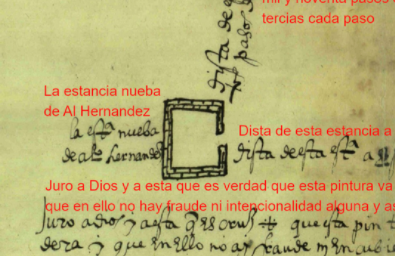 mil y noventa pasos
tercias cada paso
dista de
pasos
La estancia nueba
de Al Hernandez
la estª nueba
de alº hernandez
Dista de esta estancia a
dista de esta estª a
Juro a Dios y a esta que es verdad que esta pintura va
que en ello no hay fraude ni intencionalidad alguna y as
Juro a dios y a esta q es cruz que esta pin
dera y que en ello no ay fraude